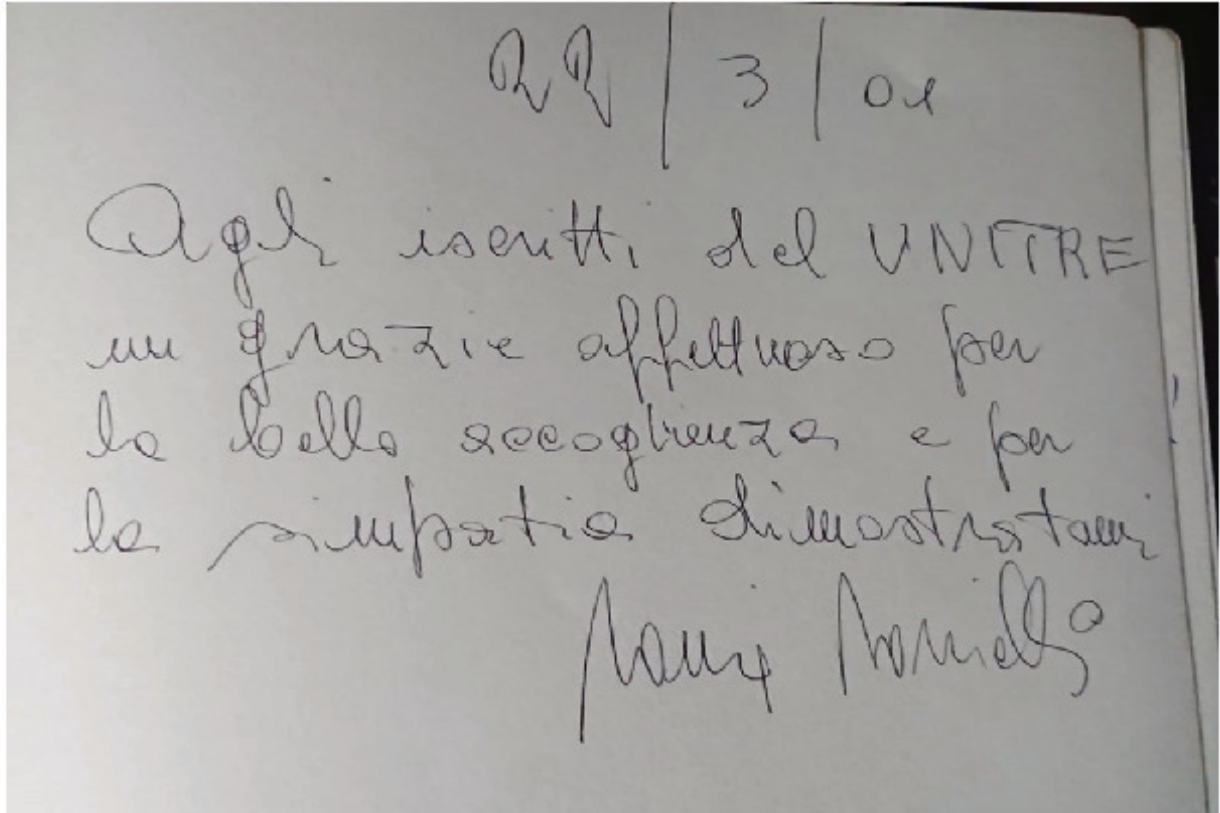 22/3/01
Agli iscritti del UNITRE
un grazie affettuoso per
la bella accoglienza e per
la simpatia dimostratami